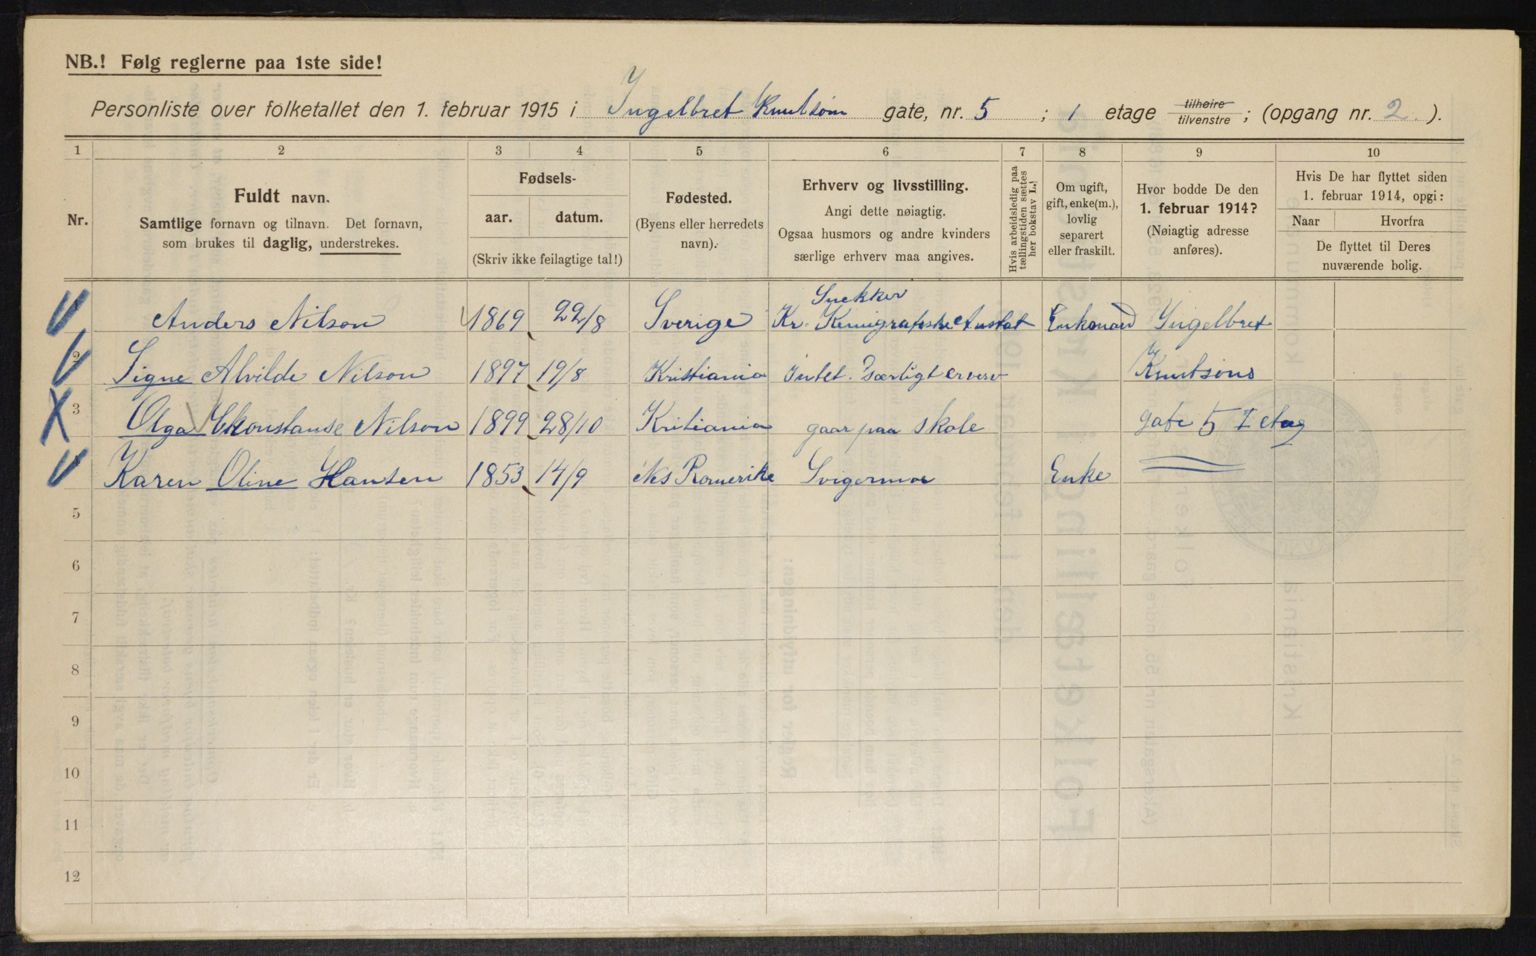 NB.! Følg reglerne paa 1ste side!
Personliste over folketallet den 1. februar 1915 i Ingelbret Knutsøns gate, nr. 5 ; 1 etage tilhøire tilvenstre ; (opgang nr. 2 ).
1 2 3 4 5 6 7 8 9 10
Nr.
Fuldt navn.
Samtlige fornavn og tilnavn. Det fornavn,
som brukes til daglig, understrekes.
Fødsels-
aar. datum.
(Skriv ikke feilagtige tal!)
Fødested.
(Byens eller herredets
navn).
Erhverv og livsstilling.
Angi dette nøiagtig.
Ogsaa husmors og andre kvinders
særlige erhverv maa angives.
Hvis arbeidsledig paa
tællingstiden sættes
her bokstav L.!
Om ugift,
gift, enke(m.),
lovlig
separert
eller fraskilt.
Hvor bodde De den
1. februar 1914?
(Nøiagtig adresse
anføres).
Hvis De har flyttet siden
1. februar 1914, opgi:
Naar Hvorfra
De flyttet til Deres
nuværende bolig.
Snekker
Anders Nilson 1869 22/8 Sverige Kr. Anstat Enkemand Ingelbret
2 Signe Alvilde Nilson 1897 19/8 Kristiania Intet Særligt erverv Knutsøns
3 Olga Konstanse Nilson 1899 28/10 Kritiania gaar paa skole gate 5 I etag
Karen Oline Hansen 1853 14/9 Nes Romerike Svigermor Enke
5
6
7
8
9
10
11
12